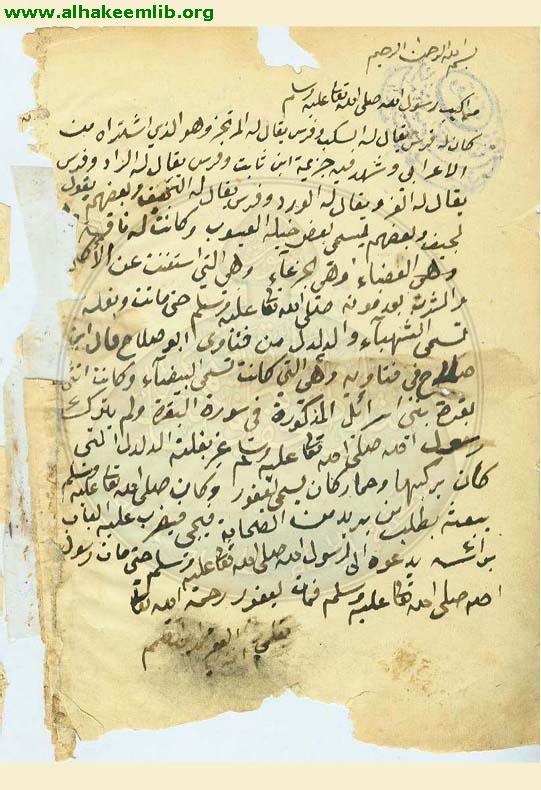 www.alhakeemlib.org
بسم الله الرحمن الرحيم
مراكيب رسول الله صلى الله تعالى عليه وسلم
كان له فرس يقال له السكب وفرس يقال له المرتجز وهو الذي اشتراه من
الاعرابي وشهد فيه خزيمة ابن ثابت وفرس يقال له الزاد وفرس
يقال له ويقال له الورد وفرس يقال له وبعضهم يقول
لحيف وبعضهم يسمي بعض خيله اليعبوب وكانت له ناقة
وهي العضباء وهي الجدعاء وهي التي استغنت عن الأكل
والشرب بعد موته صلى الله تعالى عليه وسلم حتى ماتت وبغلة
تسمى الشهباء والدلدل من فتاوى ابو صلاح قال ابن
صلاح في فتاويه وهي التي كانت تسمى البيضاء وكانت انثى
بقرة بني اسرائل المذكورة في سورة البقرة ولم يترك
رسول الله صلى الله تعالى عليه وسلم غير بغلته الدلدل التي
كان يركبها وحمار كان يسمى يعفور وكان صلى الله تعالى عليه وسلم
يبعثه يطلب من يريد من الصحابة فيجي فيضرب عليه الباب
برأسه يدعوه الى رسول الله صلى الله تعالى عليه وسلم حتى مات رسول
الله صلى الله تعالى عليه وسلم فمات يعفور رحمة الله تعالى